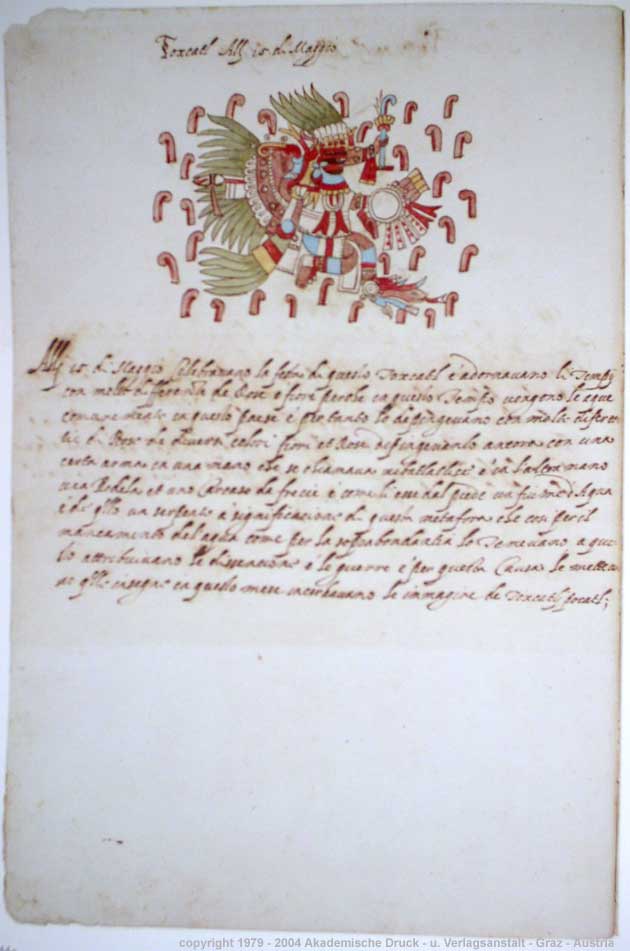 Toxcatl Alli 15 di Maggio
Alli 15 di Maggio Celebravano la festa di questo Toxcatl e adornavano li Tempij
con molta differentia de Rose e fiori perche in questo Tempo vengono le aque
comunemente in questo paese e per tanto lo depingevano con molta diferen
tia di Rose de diversi colori fiori et Rose depingevanlo ancora con una
certa arma in una mano che se chiamava e in l'altra mano
una Rodela et uno Carcaso de frecie e come li esce dal piede un fiume d'Aqua
e di qllo un serpente e significatione di questa metafora che cosi per il
mancamento del aqua come per la lo temevano a que
sto attribuivano le dissensioni e le guerre e per questa Causa le metteva
no qlle insegne in questo mese incensavano le immagine de
copyright 1979 - 2004 Akademische Druck - u. Verlagsanstalt - Graz - Austria